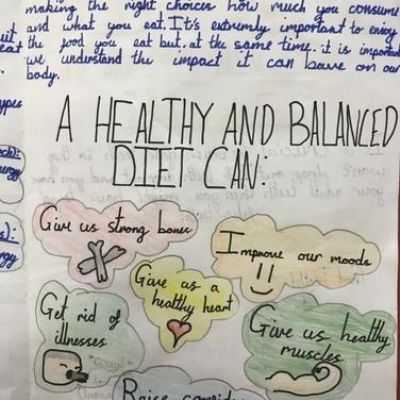 making the right choices how much you consume
and what you eat. It's extremly important to enjoy
the food you eat but at the same time it is important
we understand the impact it can have on our
body.
A HEALTHY AND BALANCED
DIET CAN:
Give us strong bones
Improve our moods
Give us a
healthy heart
Get rid of
illnesses
Give us healthy
muscles
Raise